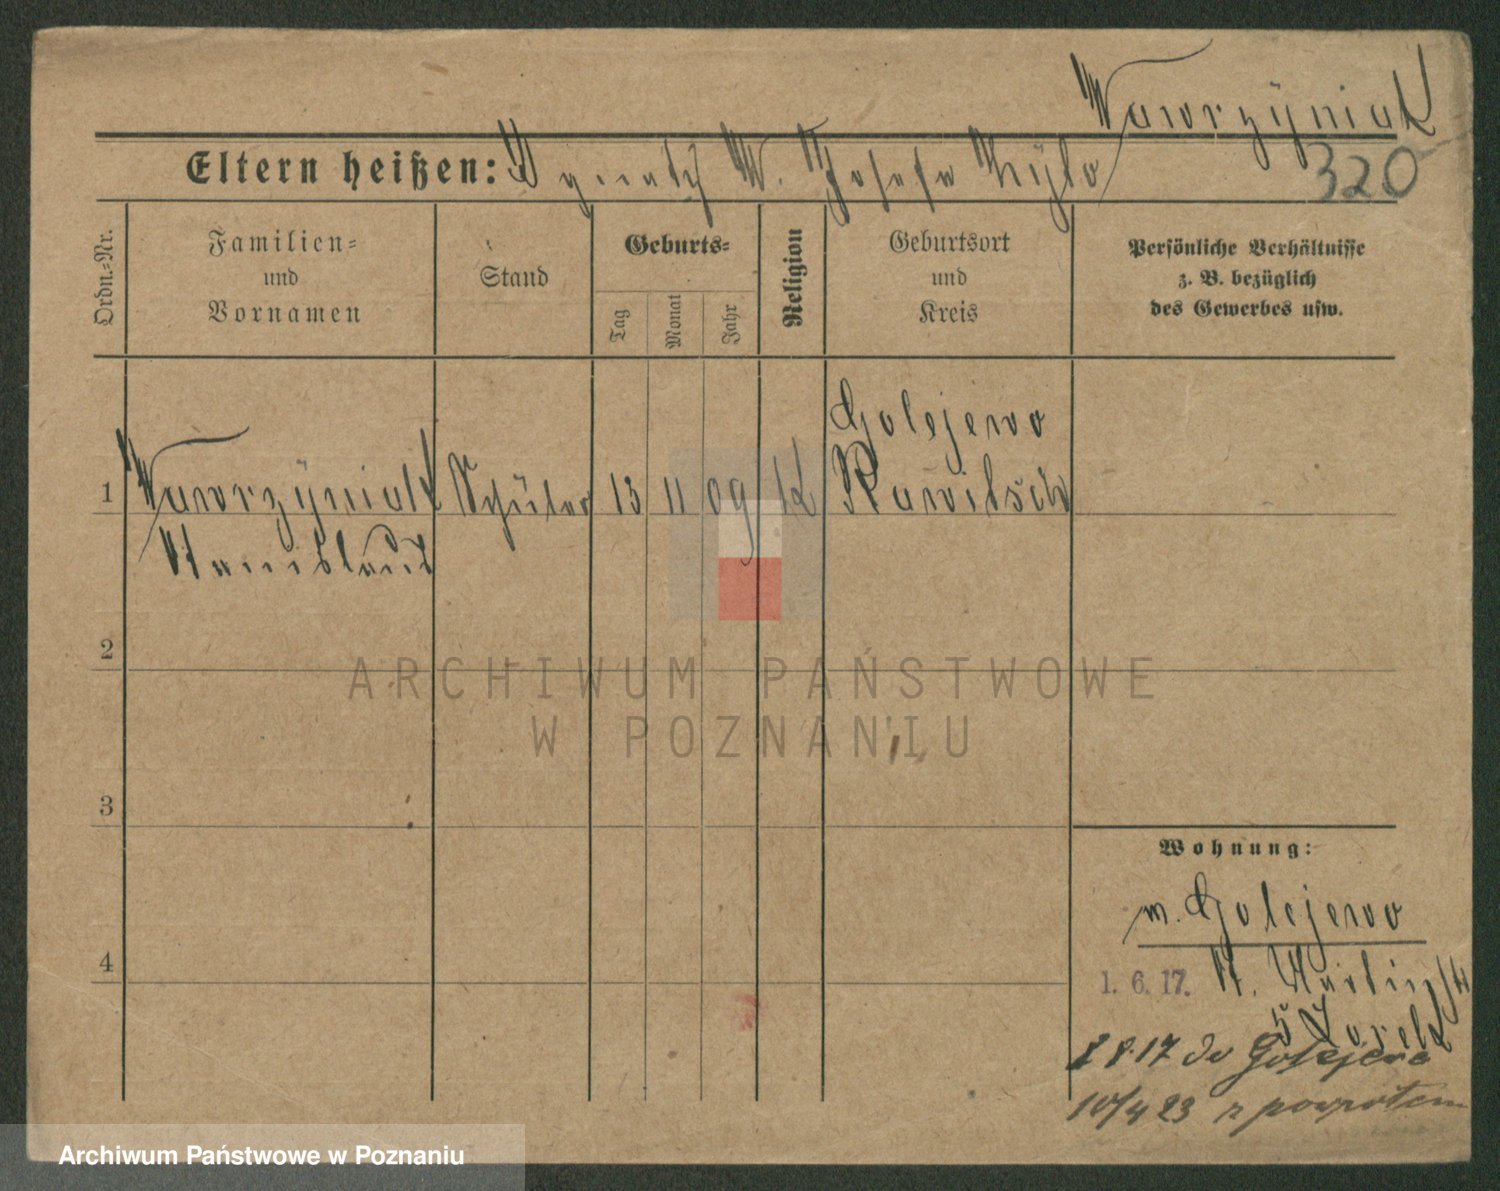 Wawrzyniak
320
Eltern heißen: Ignatz W. Josefa Kryło
Ordn.-Nr.
Familien-
und
Vornamen
Stand
Geburts-
Tag
Monat
Jahr
Religion
Geburtsort
und
Kreis
Persönliche Verhältnisse
z. B. bezüglich
des Gewerbes usw.
Golejewo
1 Wawrzyniak Schüler 13 11 09 K Rawitsch
Stanislaus
2
3
4
Wohnung:
v. Golejewo
1. 6. 17. St. Martin
5 Jorek
8.17 do Golejewa
10/4 23 z powrotem
ARCHIWUM PAŃSTWOWE
W POZNANIU
Archiwum Państwowe w Poznaniu